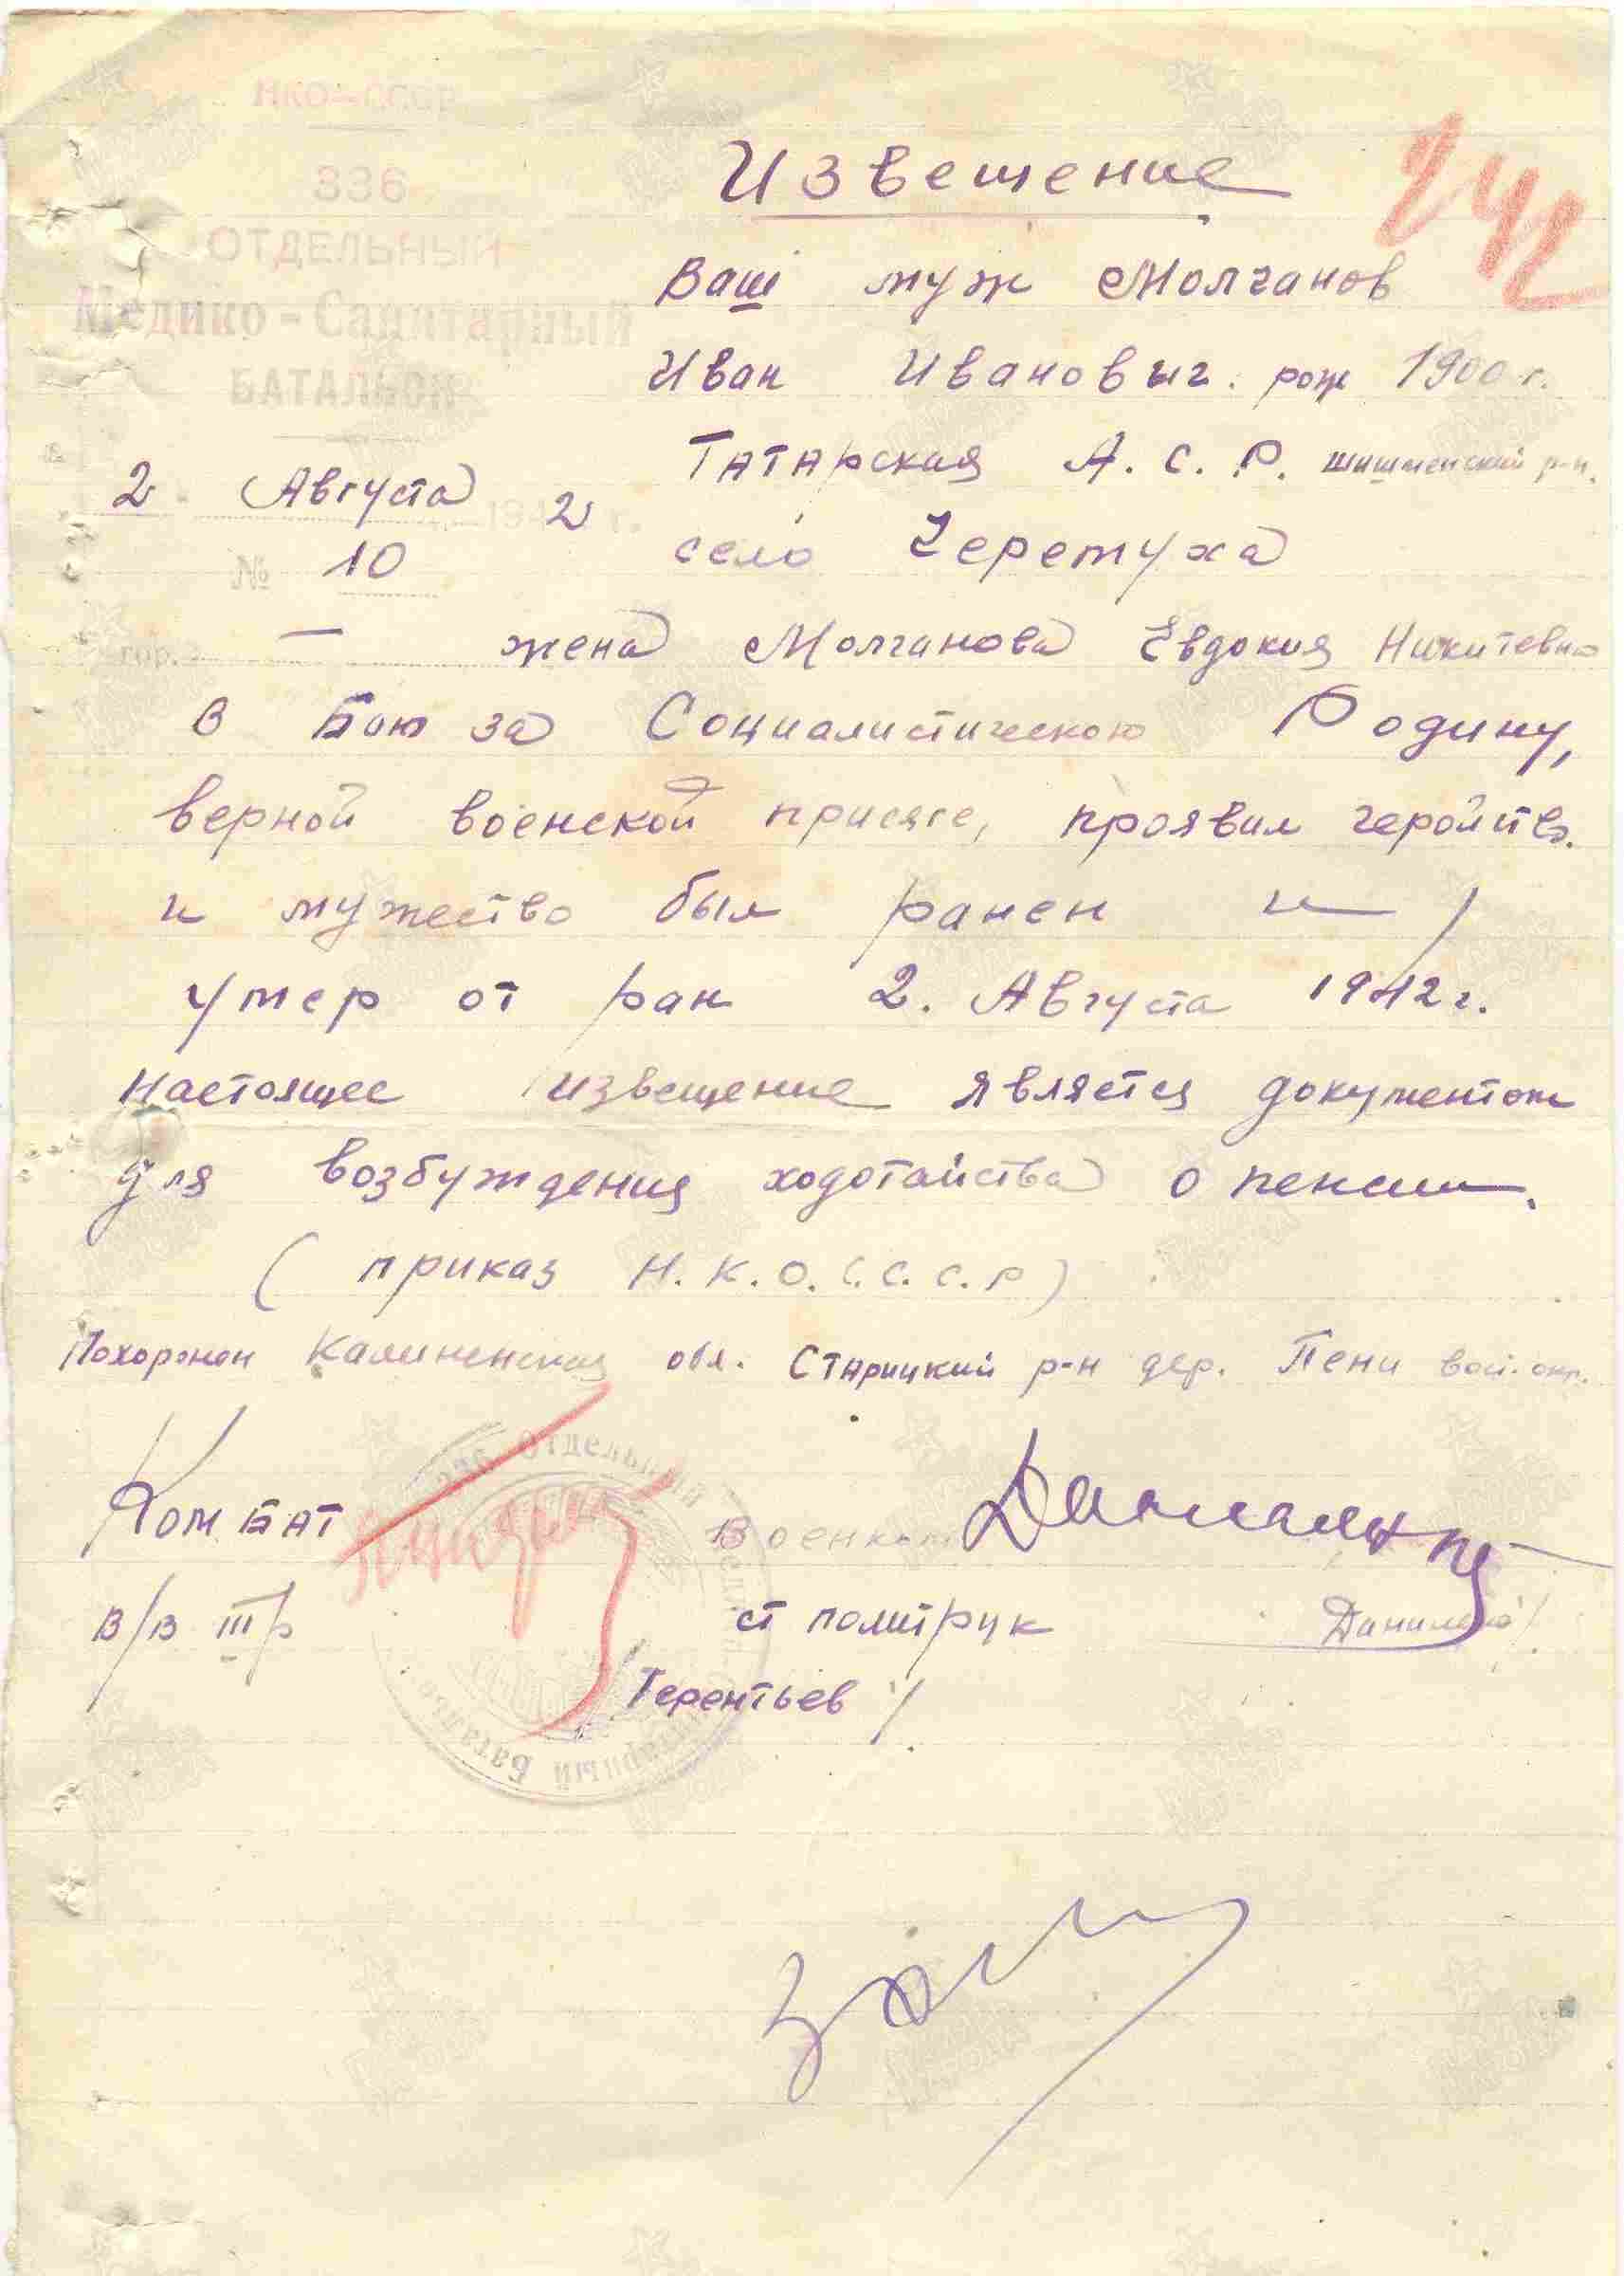 НКО-СССР
336
ОТДЕЛЬНЫЙ
Медико-Санитарный
БАТАЛЬОН
2 Августа 1942 г.
№ 10
гор. —
242
Извешение
Ваш муж Молчанов
Иван Ивановыч. рож 1900 г.
Татарская А. С. Р. шишменский р-н.
село Черемуха
жена Молчанова Евдокия Никитевна
В Бою за Социалистическою Родину,
верной военской присяге, проявил геройств.
и мужество был ранен и
умер от ран 2. Августа 1942 г.
Настоящее извещение является документом
для возбуждения ходотайства о пенсии.
(приказ Н.К.О. С.С.С.Р)
Похоронен Калиненская обл. Старицкий р-н дер. Пени
Комбат Военком
в/в III р ст политрук
Терентьев /
Отдельный
Батальон